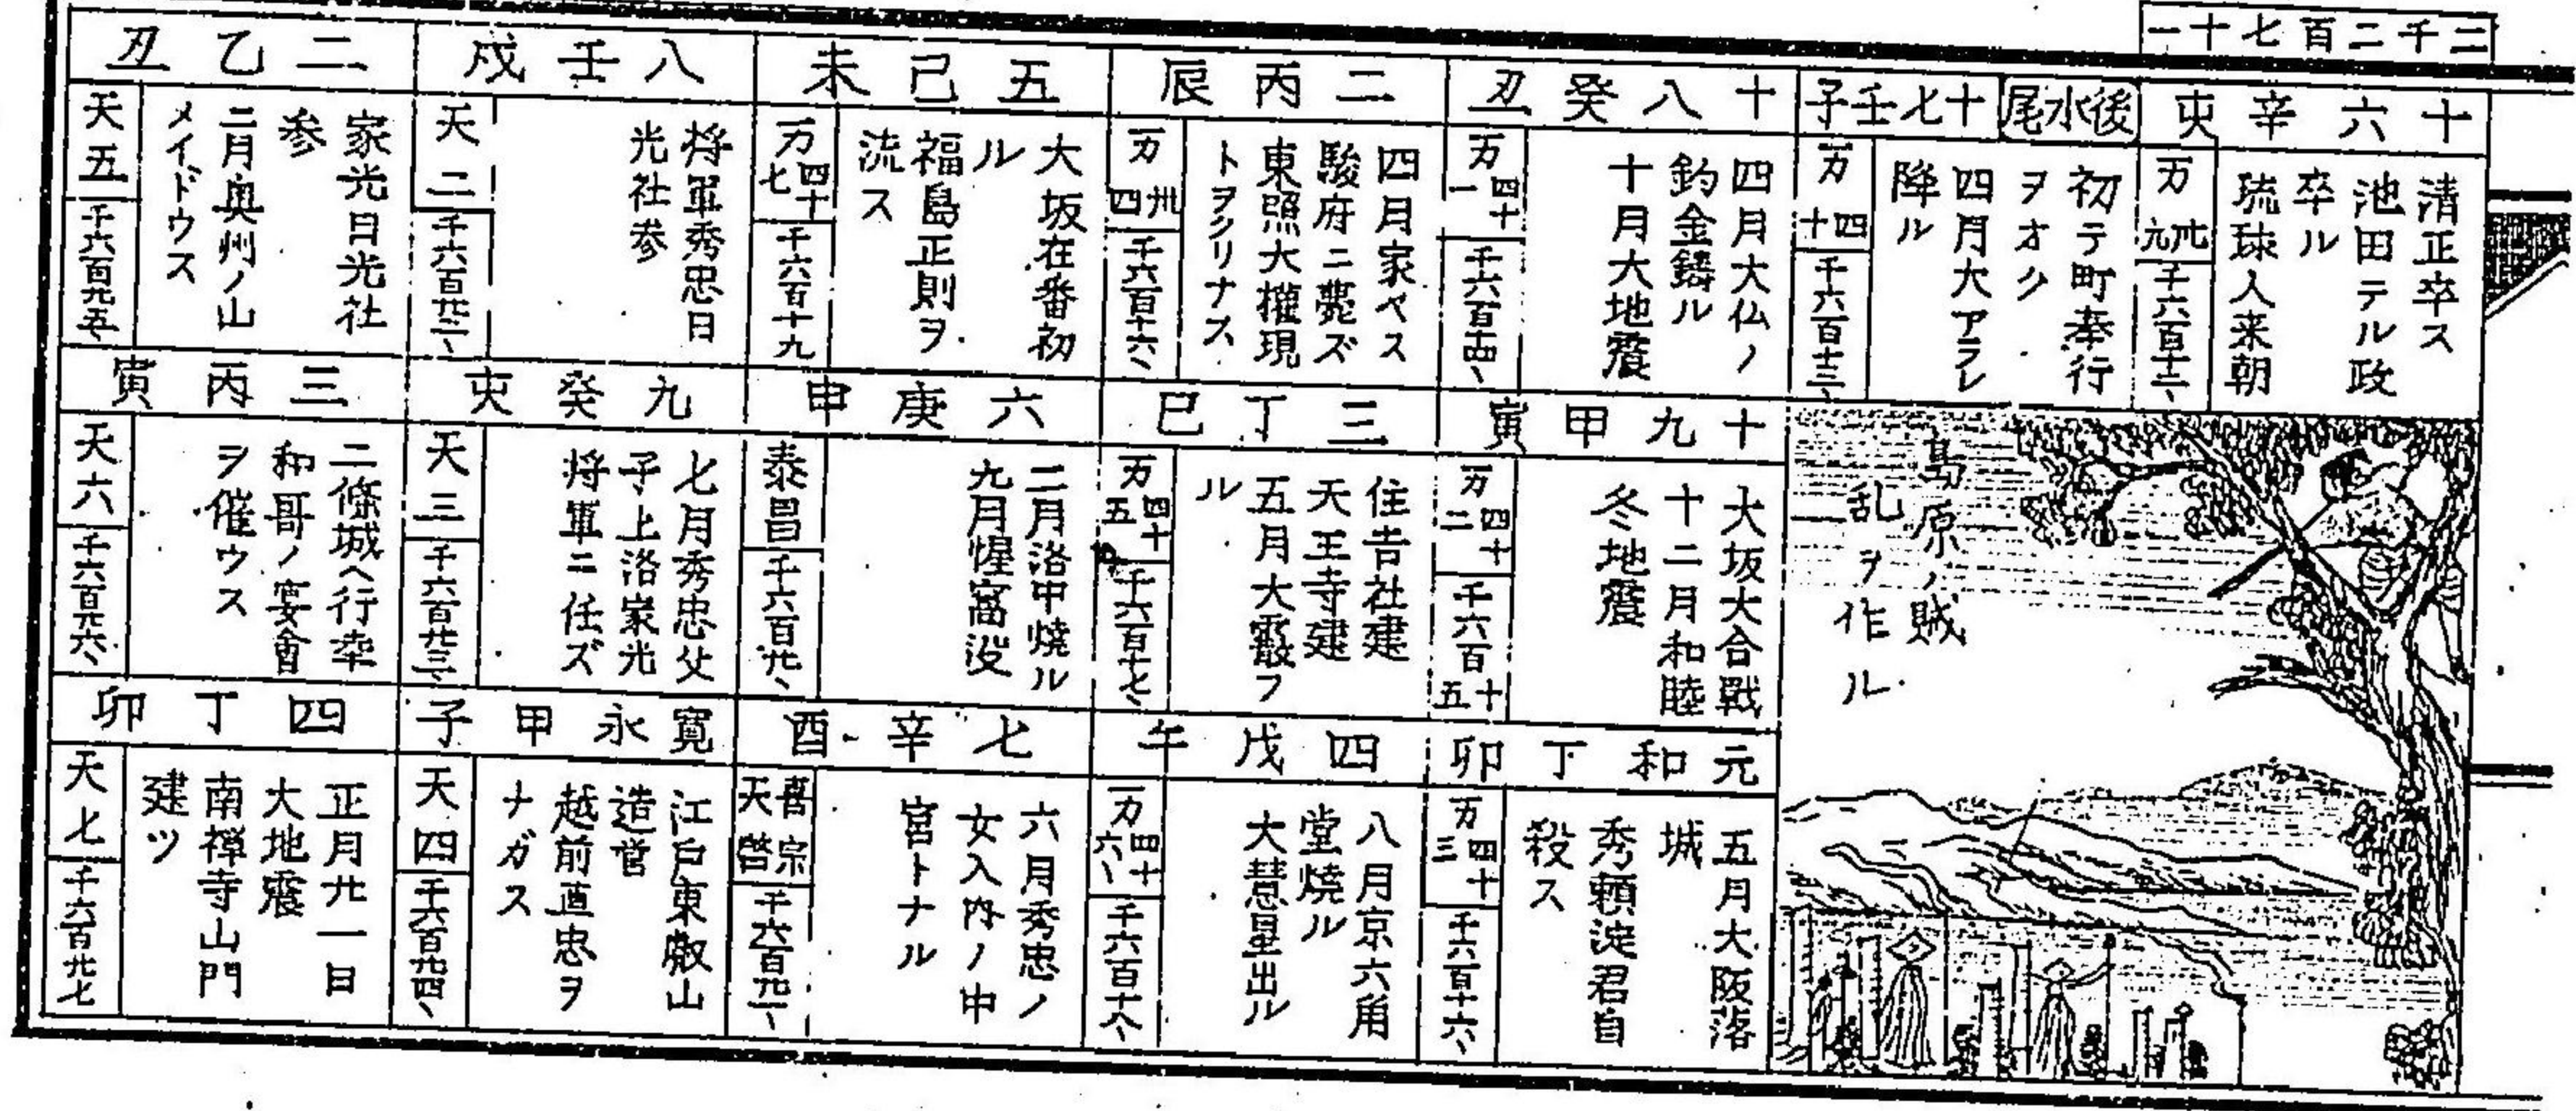 二千二百七十一
十六辛亥
清正卒ス
池田テル政
卒ル
琉球人来朝
万
卅九
千六百十二
後水尾
十七壬子
初テ町奉行
ヲオク
四月大アラレ
降ル
万
四十
千六百十三
十八癸丑
四月大仏ノ
釣金鑄ル
十月大地震
万
四十一
千六百十四
十九甲寅
大坂大合戰
十二月和睦
冬地震
万
四十二
千六百十五
元和丁卯
五月大阪落
城
秀頼淀君自
殺ス
万
四十三
千六百十六
島原ノ賊
乱ヲ作ル
二丙辰
四月家ヤスス
駿府ニ薨ズ
東照大權現
トヲクリナス
万
卅四
千六百十六
三丁巳
住吉社建
天王寺建
五月大霰フ
ル
万
四十五
千六百十七
四戊午
八月京六角
堂燒ル
大慧星出ル
万
四十六
千六百十八
五己未
大坂在番初
ル
福島正則ヲ
流ス
万
四十七
千六百十九
六庚申
二月洛中燒ル
九月惺窩没
泰昌
千六百廿
七辛酉
六月秀忠ノ
女入内ノ中
宮トナル
熹宗
天啓
千六百廿一
八壬戌
将軍秀忠日
光社参
天二
千六百廿二
九癸亥
七月秀忠父
子上洛家光
将軍ニ任ズ
天三
千六百廿三
寛永甲子
江戸東叡山
造営
越前直忠ヲ
ナガス
天四
千六百廿四
二乙丑
家光日光社
参
二月奥州ノ山
メイドウス
天五
千六百廿五
三丙寅
二條城ヘ行幸
和哥ノ宴會
ヲ催ウス
天六
千六百廿六
四丁卯
正月廿一日
大地震
南禅寺山門
建ツ
天七
千六百廿七